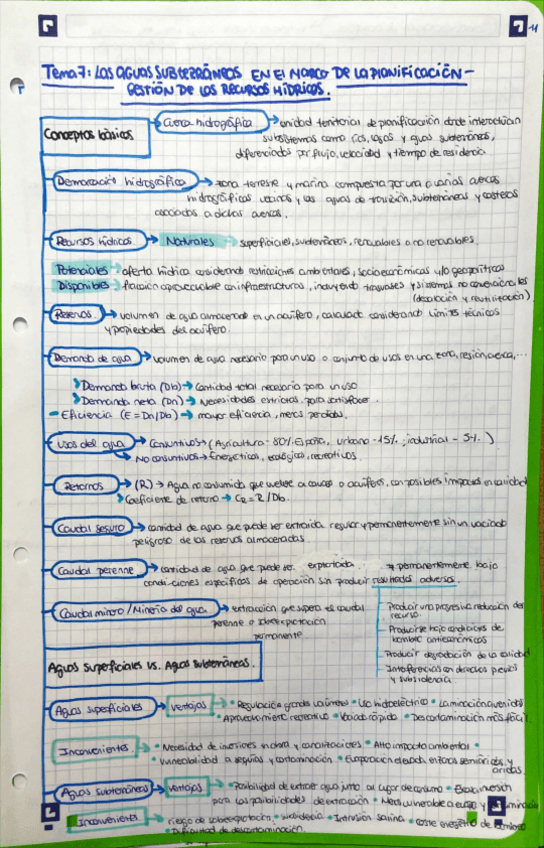 Tema 7: LAS AGUAS SUBTERRÁNEAS EN EL MARCO DE LA PLANIFICACIÓN-
GESTIÓN DE LOS RECURSOS HÍDRICOS.
Conceptos básicos
Cuenca hidrográfica → unidad territorial de planificación donde interactúan
subsistemas como ríos, lagos y aguas subterráneas,
diferenciados por flujo, velocidad y tiempo de residencia
Demarcación hidrográfica → zona terrestre y marina compuesta por una o varias cuencas
hidrográficas vecinas y las aguas de transición, subterráneas y costeras
asociadas a dichas cuencas.
Recursos hídricos → Naturales superficiales, subterráneos, renovables o no renovables.
Potenciales → oferta hídrica considerando restricciones ambientales, socioeconómicas y/o geopolíticas
Disponibles → fracción aprovechable con infraestructuras, incluyendo trasvases y sistemas no convencionales
(desalación y reutilización)
Reservas → volumen de agua almacenado en un acuífero, calculado considerando límites técnicos
y propiedades del acuífero.
Demanda de agua → volumen de agua necesario para un uso o conjunto de usos en una zona, región, área,...
Demanda bruta (Db) → Cantidad total necesaria para un uso
Demanda neta (Dn) → Necesidades estrictas para satisfacer.
Eficiencia (E = Dn/Db) → mayor eficiencia, menos pérdidas.
Usos del agua → Consuntivos → (Agricultura - 80% España, urbano - 15%, industrial - 5%.)
No consuntivos → Energéticos, ecológicos, recreativos.
Retornos → (R) → Agua no consumida que vuelve a cauces o acuíferos, con posibles impactos en calidad
Coeficiente de retorno → CR = R / Db.
Caudal seguro → cantidad de agua que puede ser extraída regular y permanentemente sin un vaciado
peligroso de las reservas almacenadas.
Caudal perenne → cantidad de agua que puede ser explotada permanentemente bajo
condiciones específicas de operación sin producir resultados adversos.
Caudal minero / Minería del agua → extracción que supera el caudal
perenne o sobreexplotación
permanente
Producir una progresiva reducción del
recurso
Producirse bajo condiciones de
bombeo antieconómicas
Producir degradación de la calidad
Interferencias en derechos previos
y subsidencia
Aguas superficiales vs. Aguas subterráneas.
Aguas superficiales → Ventajas → • Regulación grandes volúmenes • Uso hidroeléctrico • Laminación avenidas
• Aprovechamiento recreativo • Vaciado rápido • Descontaminación más fácil.
Inconvenientes → • Necesidad de inversiones en obra y canalizaciones • Alto impacto ambiental •
• Vulnerabilidad a sequías y contaminación • Evaporación elevada en zonas semiáridas y
áridas.
Aguas subterráneas → Ventajas → • Posibilidad de extraer agua junto al lugar de consumo • Escasa inversión
para las posibilidades de extracción • Menos vulnerable a
Inconvenientes → riesgo de sobreexplotación • subsidencia • Intrusión salina • coste energético de bombeo
• Dificultad de descontaminación.